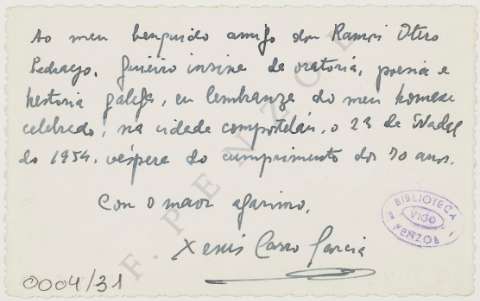 Ao meu benquido amigo don Ramón Otero
Pedrayo. Guieiro insine de oratoria, poesia e
hestoria galega, en lembranza do meu homenaxe
celebrado, na cidade compostelán, o 23 de Nadal
do 1954, véspera do cumprimento dos 70 anos.
Con o maor agarimo,
Xesús Carro García
F. PENZOL
BIBLIOTECA
VIGO
PENZOL
0004/31